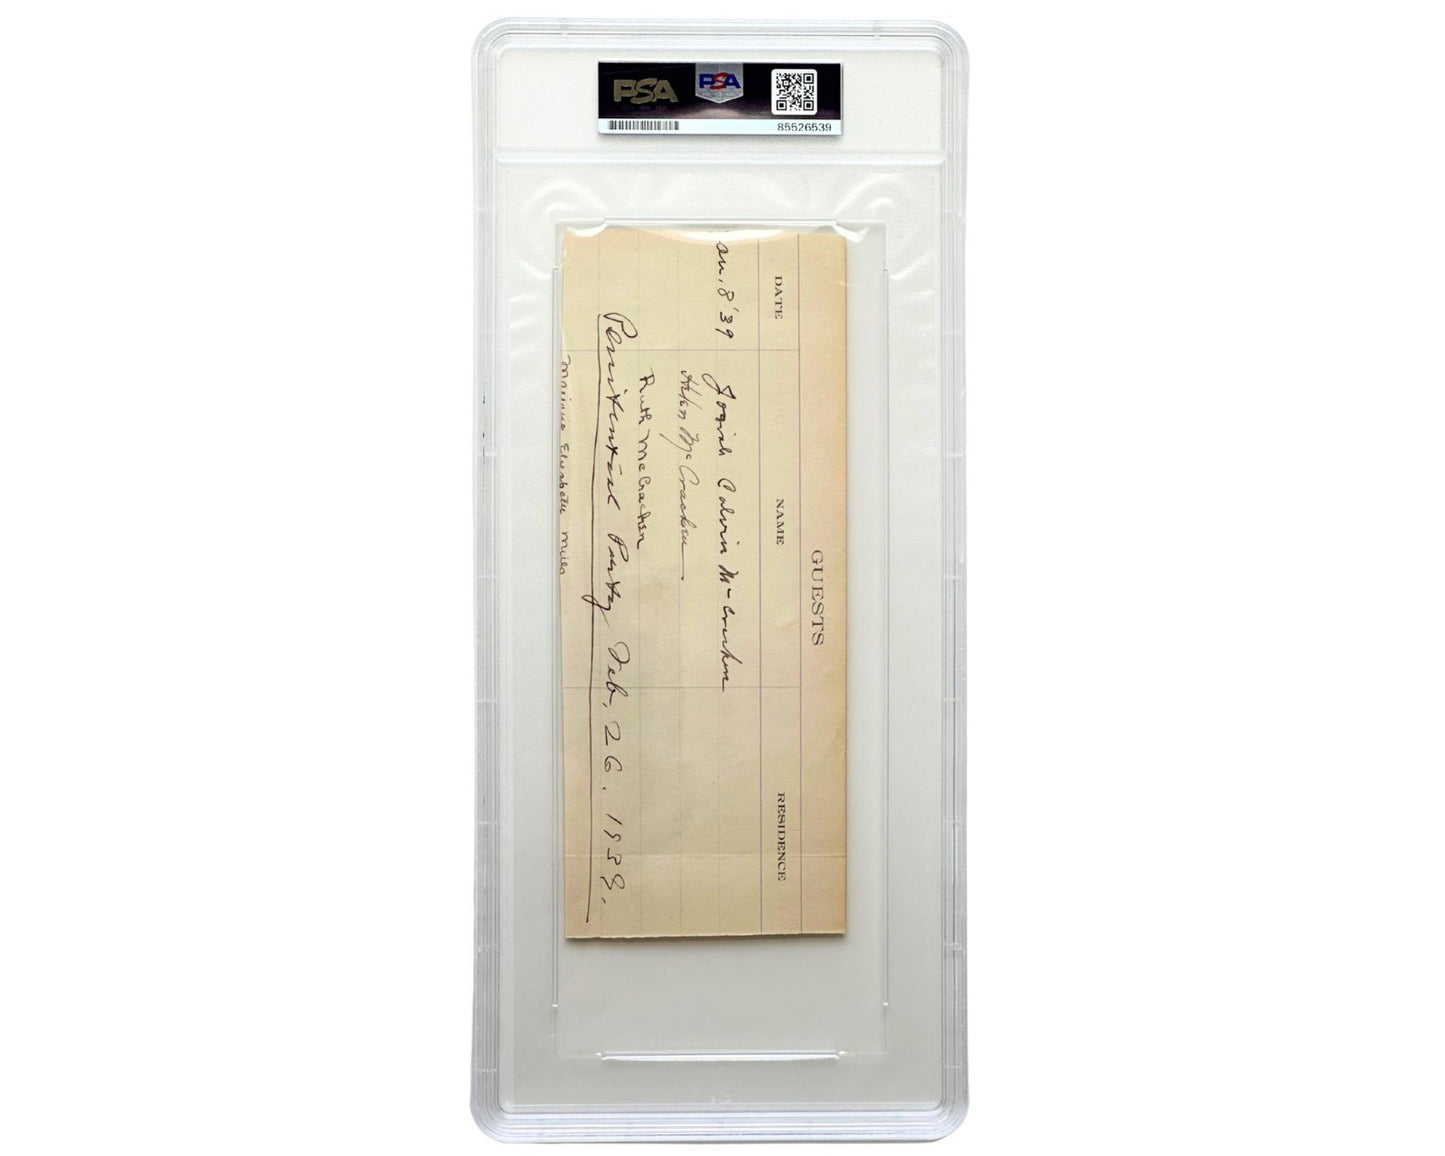 PSA
PSA
85526539
GUESTS
DATE NAME RESIDENCE
an. 8 '39 Josiah Calvin McCracken
Helen McCracken
Ruth McCracken
Penitential Party Feb, 26. 1939.
Marjorie Elizabeth